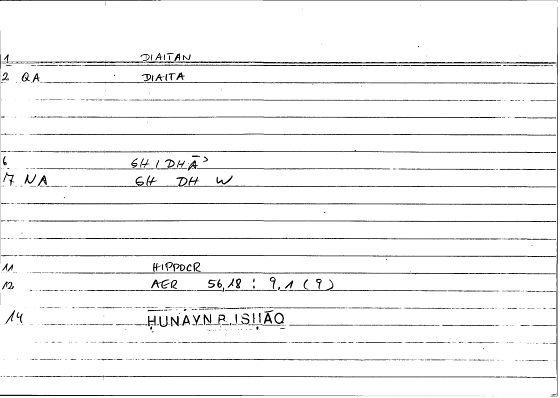 1 DIAITAN
2 QA DIAITA
6 GH I DHĀ'
7 NA GH DH W
11 HIPPOCR
12 AER 56,18 : 9,1 (9)
14 ḤUNAYN B. ISḤĀQ